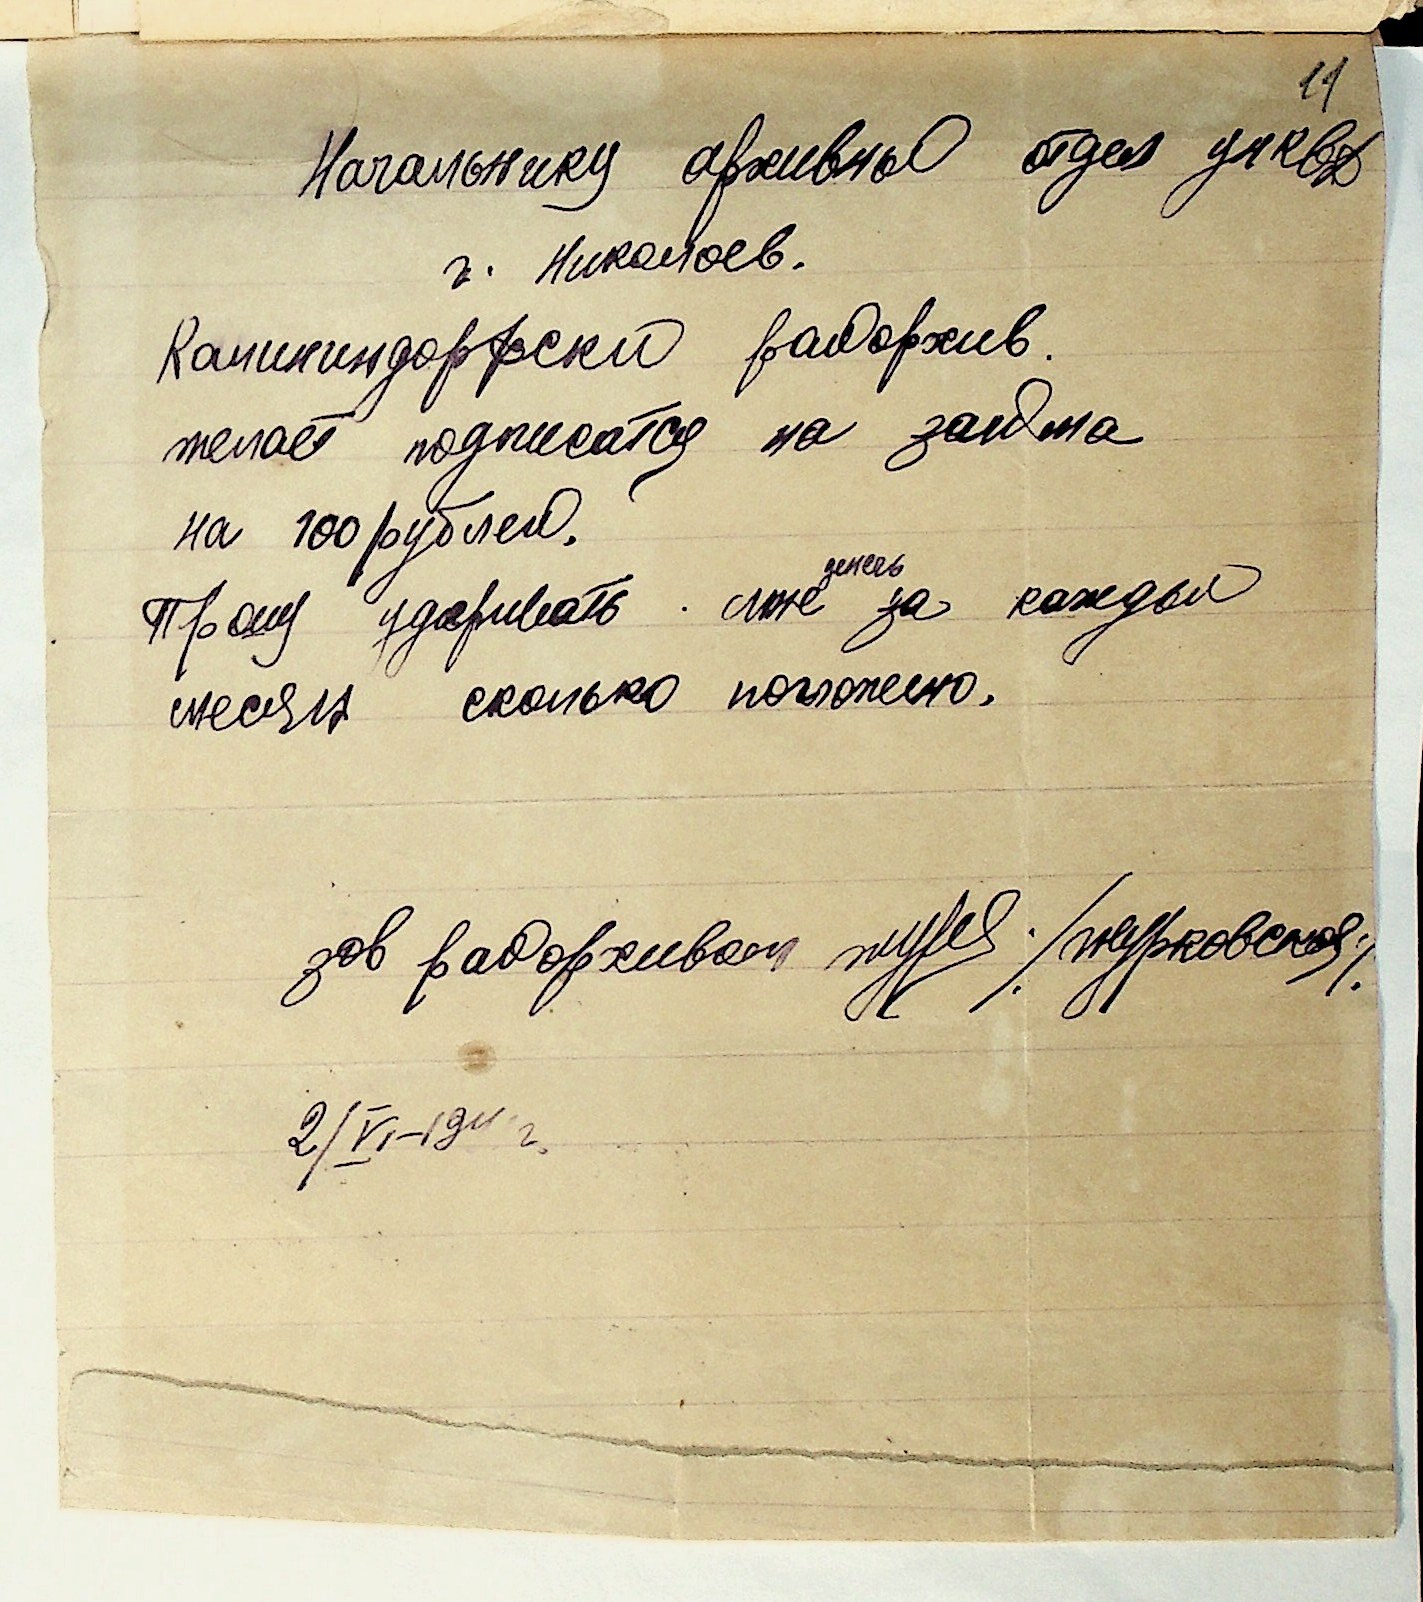 11
Начальнику архивный отдел УНКВД
г. Николаев.
Калининдорфский райархив.
желает подписатся на займа
на 100 рублей.
Прошу удерживать мне за каждый
месяц сколько положено.
зав райархивом /Журковская/.
2/VI-1941 г.